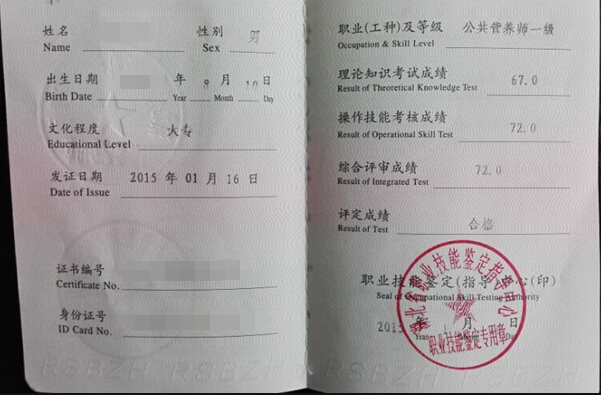 姓名
Name
性别 男
Sex
出生日期 年 9 月 10 日
Birth Date Year Month Day
文化程度 大专
Educational Level
发证日期 2015 年 01 月 16 日
Date of Issue
证书编号
Certificate No.
身份证号
ID Card No.
职业(工种)及等级 公共营养师一级
Occupation & Skill Level
理论知识考试成绩 67.0
Result of Theoretical Knowledge Test
操作技能考核成绩 72.0
Result of Operational Skill Test
综合评审成绩 72.0
Result of Integrated Test
评定成绩 合格
Result of Test
职业技能鉴定(指导)中心(印)
Seal of Occupational Skill Testing Authority
2015 年 1 月 日
Year Day
北省职业技能鉴定指导中心
职业技能鉴定专用章
RSBZH RSBZH